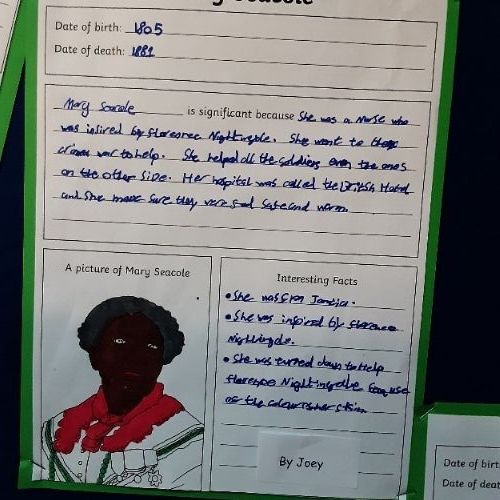 Seacole
Date of birth: 1805
Date of death: 1881
Mary Seacole is significant because She was a Nurse who
was insired by florence Nightingale. She went to the
crimea war to help. She helped all the soldiers even the ones
on the other side. Her hospital was called the British Hotel
and She made sure they were safe and warm.
A picture of Mary Seacole
Interesting Facts
• She was from
• She was inspired by florence
Nightingale.
• She was turned down to help
florence Nightingale
of the colour is her skin
By Joey
Date of birt
Date of deat